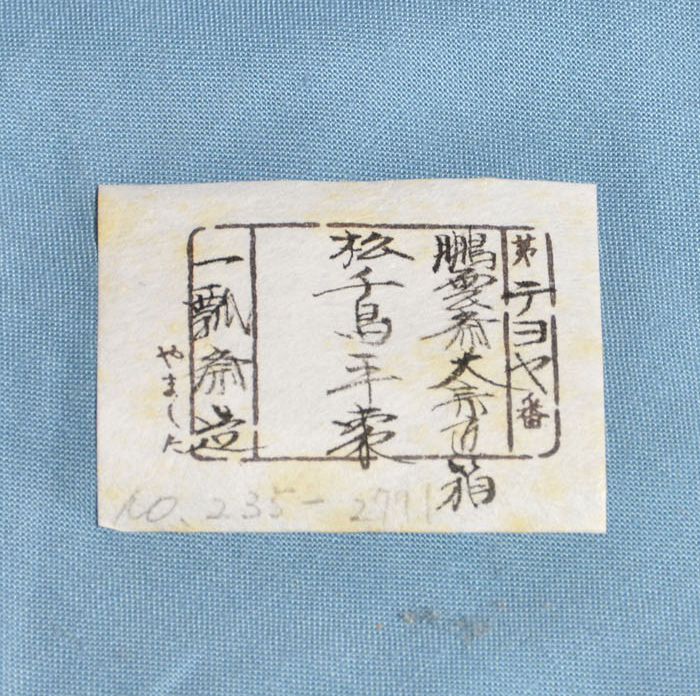 第テヨヤ番
鵬雲斎大宗匠箱
松千鳥平棗
一瓢斎造
やました
NO. 235-2771